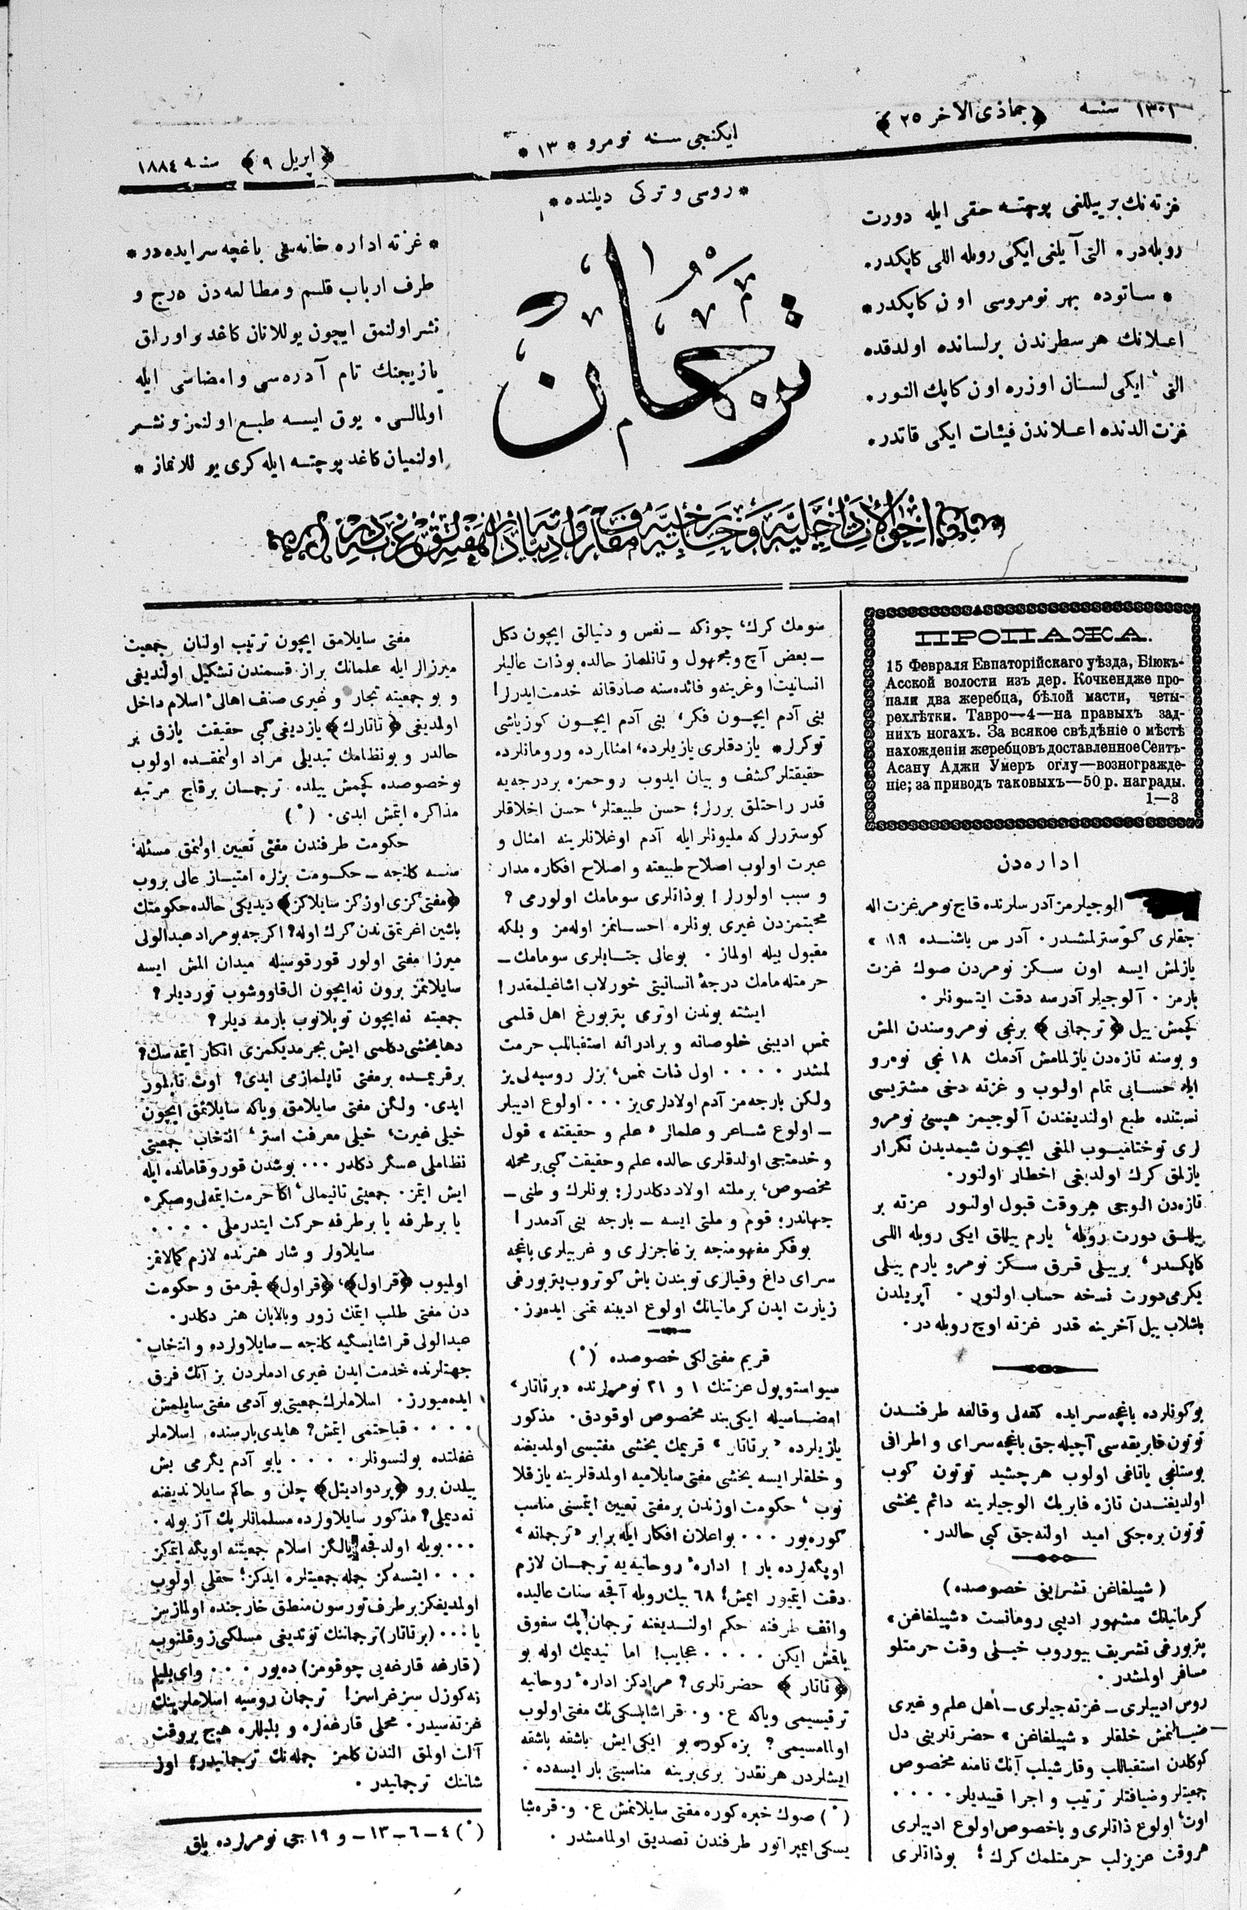 ١٣٠١ سنه ﴿ جماذی الاخر ٢٥ ﴾
ایكنجی سنه نومرو * ١٣ *
﴿ اپریل ٩ ﴾ سنه ١٨٨٤
* روسی و تركی دیلنده *
غزته نك بر ییللغی پوچتسه حقی ایله دورت
روبله در • التی آیلغی ایكی روبله اللی كاپكدر•
* ساتوده بهر نومروسی اون كاپكدر*
اعلانك هر سطرندن برلسانده اولدقده
التی ٬ ایكی لسان اوزره اون كاپك النور•
غزت الدنده اعلاندن فیئات ایكی قاتدر•
ترجمان
* غزته اداره خانه سی باغچه سرایده در *
طرف ارباب قلم و مطالعه دن درج و
نشر اولنمق ایچون یوللانان كاغد و اوراق
یازیجنك تام آدره سی و امضاسی ایله
اولمالی • یوق ایسه طبع اولنمز و نشر
اولنمیان كاغد پوچتسه ایله كری یوللانماز *
ПРОПАЖА.
15 Февраля Евпаторійскаго уѣзда, Біюкъ-
Асской волости изъ дер. Кочкендже про-
пали два жеребца, бѣлой масти, четы-
рехлѣтки. Тавро—4—на правыхъ зад-
нихъ ногахъ. За всякое свѣдѣніе о мѣстѣ
нахожденіи жеребцовъ доставленное Сеитъ-
Асану Аджи Умеръ оглу—вознагражде-
ніе; за приводъ таковыхъ—50 р. награды.
1—3
اداره دن
الوجیلرمز آدرسلرنده قاچ نومر غزت اله
جقلری كوسترلمشدر• آدرس باشنده ١٩ »
یازلمش ایسه اون سكز نومردن صوك غزت
بارمز • آلوجیلر آدرسه دقت ایتسونلر •
كچمش ییل ﴿ ترجمانی ﴾ برنجی نومروسندن المش
و بوسنه تازه دن یازلمامش آدمك ١٨ نجی نومرو
ایله حسابی تمام اولوب و غزته دخی مشتریسی
نسبتنده طبع اولندیغندن آلوجیمز هپسی نومرو
لری توختامیوب المغی ایچون شیمدیدن تكرار
یازلق كرك اولدیغی اخطار اولنور•
تازه دن الوجی هروقت قبول اولنور غزته بر
ییللق دورت روبله٬ یارم ییللق ایكی روبله اللی
كاپكدر٬ برییلی قرق سكز نومرو یارم ییلی
یكرمی دورت نسخه حساب اولنور • آپریلدن
باشلاب ییل آخرینه قدر غزته اوچ روبله در•
بو كونلرده باغچه سرایده كفه لی وقالفه طرفندن
توتون فابریقه سی آچیله جق باغچه سرای و اطرافی
بوستلغی یاتاغی اولوب هرچشید توتون كوب
اولدیغندن تازه فابریك الوجیلرینه دائم یخشی
توتون بره جكی امید اولنه جق كبی حالدر•
( شپیلغاغن تشریفی خصوصده )
كرمانیانك مشهور ادیبی رومانست «شپیلغاغن»
پتربورغی تشریف بیوروب خیلی وقت حرمتلو
مسافر اولمشدر •
روس ادیبلری — غزته جیلری — اهل علم و غیری
ضیالنمش خلقلر «شپیلغاغن» حضرتلرینی دل
كوكلدن استقباللب وقارشیلب آنك نامنه مخصوص
جمعیتلر وضیافتلر ترتیب و اجرا قیبدیلر • • • •
اوت٬ اولوغ ذاتلری و باخصوص اولوغ ادیبلری
هروقت عزیزلب حرمتلمك كرك ؛ بو ذاتلری
سومك كرك٬ چونكه — نفس و دنیالق ایچون دكل
— بعض آچ و مجهول و تانلماز حالده بوذات عالیلر
انسانیت اوغرینه و فائده سنه صادقانه خدمت ایدرلر!
بنی آدم ایچون فكر٬ بنی آدم ایچون كوزیاشی
توكرلر* یازدقلری یازیلرده٬ امثاللرده ورومانلرده
حقیقتلر كشف و بیان ایدوب روحمزه بردرجه یه
قدر راحتلق بررلر؛ حسن طبیعتلر٬ حسن اخلاقلر
كوسترلر كه ملیونلر ایله آدم اوغلانلرینه امثال و
عبرت اولوب اصلاح طبیعته و اصلاح افكاره مدار
و سبب اولورلر ! بوذاتلری سومامك اولورمی ؟
محبتمزدن غیری بونلره احسانمز اوله مز و بلكه
مقبول بیله اولماز • بوعالی جنابلری سومامك —
حرمتله مامك درجهٔ انسانیتی خورلاب اشاغیلمقدر!
ایشته بوندن اوتری پتربورغ اهل قلمی
نمس ادیبنی خلوصانه و برادرانه استقباللب حرمت
لمشدر • • • • اول ذات نمس٬ بزلر روسیه لی یز
ولكن بارجه مز آدم اولادلری یز • • • اولوغ ادیبلر
— اولوغ شاعر و علمالر «علم و حقیقته» قول
و خدمتجی اولدقلری حالده علم و حقیقت كبی بر محله
مخصوص٬ بر ملته اولاد دكلدرلر؛ بونلرك وطنی —
جهاندر؛ قوم و ملتی ایسه — بارجه بنی آدمدر!
بو فكر مفهومنجه بز عاجزلری و غریبلری باغچه
سرای داغ وقیالری توبندن باش كوتروب پتربورغی
زیارت ایدن كرمانیانك اولوغ ادیبنه تمنی ایده رز•
قریم مفتی لكی خصوصده (*)
سیواستوپول غزتنك ١ و ٢١ نومرلرنده «برتاتار»
امضاسیله ایكی بند مخصوص اوقودق • مذكور
یازیلرده «برتاتار» قریمك یخشی مفتیسی اولمدیغنه
و خلقلر ایسه یخشی مفتی سایلامیه اولمدقلرینه یازقلا
نوب ٬ حكومت اوزندن بر مفتی تعیین ایتمسنی مناسب
كوره یور • • • بواعلان افكار ایله برابر «ترجمانه»
اوپكه لرده بار ! ادارهٔ روحانیه یه ترجمان لازم
دقت ایتمیور ایمش؛ ٦٨ بیك روبله آقچه سنات عالیده
واقف طرفنه حكم اولندیغنه ترجمان پك سغوق
باقش ایكن • • • • عجایب! اما نیدیمك اوله بو
﴿ تاتار ﴾ حضرتلری؟ مرادكز ادارهٔ روحانیه
ترقیسیمی وباكه ع • و • قراشایسكی نك مفتی اولوب
اولمامسیمی؟ بزه كوره بو ایكی ایش باشقه باشقه
ایشلردر هرنقدر بری برینه مناسبتی بار ایسه ده •
(*) صوك خبره كوره مفتی سایلانمش ع • و • قره شا
یسكی ایمپراتور طرفندن تصدیق اولمامشدر •
مفتی سایلامق ایچون ترتیب اولنان جمعیت
میرزالر ایله علمانك براز قسمندن تشكیل اولندیغی
و بو جمعیته تجار و غیری صنف اهالیٔ اسلام داخل
اولمدیغی ﴿ تاتارك ﴾ یازدیغی كبی حقیقت یازق بر
حالدر و بونظامك تبدیلی مراد اولنمقده اولوب
بوخصوصده كچمش ییلده ترجمان برقاج مرتبه
مذاكره ایتمش ایدی• (*)
حكومت طرفندن مفتی تعیین اولنمق مسئله
سنه كلنجه — حكومت بزلره امتیاز عالی بروب
﴿مفتی كزی اوزكز سایلاكز﴾ دیدیكی حالده حكومتك
باشین اغرتمق ندن كرك اوله؟ اكرچه بومراد عبدالولی
میرزا مفتی اولور قورقوسیله میدان المش ایسه
سایلانمز برون نه ایچون ال قاووشوب توردیلر؟
جمعیته نه ایچون توپلانوب بارمه دیلر؟
دها یخشی دكلمی ایش بجرمدیكمزی انكار ایتمه سك؟
برقریمده بر مفتی تاپلمازمی ایدی؟ اوت تاپلور
ایدی• ولكن مفتی سایلامق وباكه سایلاتمق ایچون
خیلی غیرت٬ خیلی معرفت استر٬ انتخاب جمعیتی
نظاملی عسكر دكلدر • • • بوشدن قوروقامانده ایله
ایش ایتمز• جمعیتی تانیمالی٬ اكا حرمت ایتمه لی وصكره•
یا برطرفه یا برطرفه حركت ایتدرملی • • • •
سایلاولر و شار هنرنده لازم كمالاتمز
اولمیوب ﴿قراول﴾٬ ﴿قراول﴾ قچرمق و حكومت
دن مفتی طلب ایتمك زور وبالابان هنر دكلدر•
عبدالولی قراشایسكی یه كلنجه — سایلاولرده و انتخاب
جهتلرنده خدمت ایدن غیری ادملردن بز آنك فرق
ایده میورز• اسلاملرك جمعیتی بو آدمی مفتی سایلمش
• • • • قباحتمی ایتمش؟ هایدی بارسنده اسلاملر
غفلتده بولنسونلر • • • • یابو آدم یگرمی بش
ییلدن برو ﴿پردوادیتل﴾ چلن و حاكم سایلاندیغنه
نه دیملی؟ مذكور سایلاولرده مسلمانلر پك آز بوله •
• • • بویله اولدقجه یالكز اسلام جمعیتنه اوپكه ایتمكز
• • • ایتسه كز جمله جمعیتلره ایدكز؛ حقلی اولوب
اولمدیغكز برطرف تورسون منطق خارجنده اولمازسز
یا ! • • (برتاتار) ترجماننك توتدیغی مسلكی ز و قلنوب
(قارغه قارغه نی چوقومز) ده یور • • • وای بلیلم
نه كوزل سیز غراسز! ترجمان روسیه اسلاملرینك
غزته سیدر• محلی قارغه لره و بلبللره هیچ بروقت
آلت اولمق الندن كلمز جمله نك ترجمانیدر؛ اوز
شاننك ترجمانیدر •
(*) ٤ — ٦ — ١٣ — و ١٩ جی نومرلرده باق